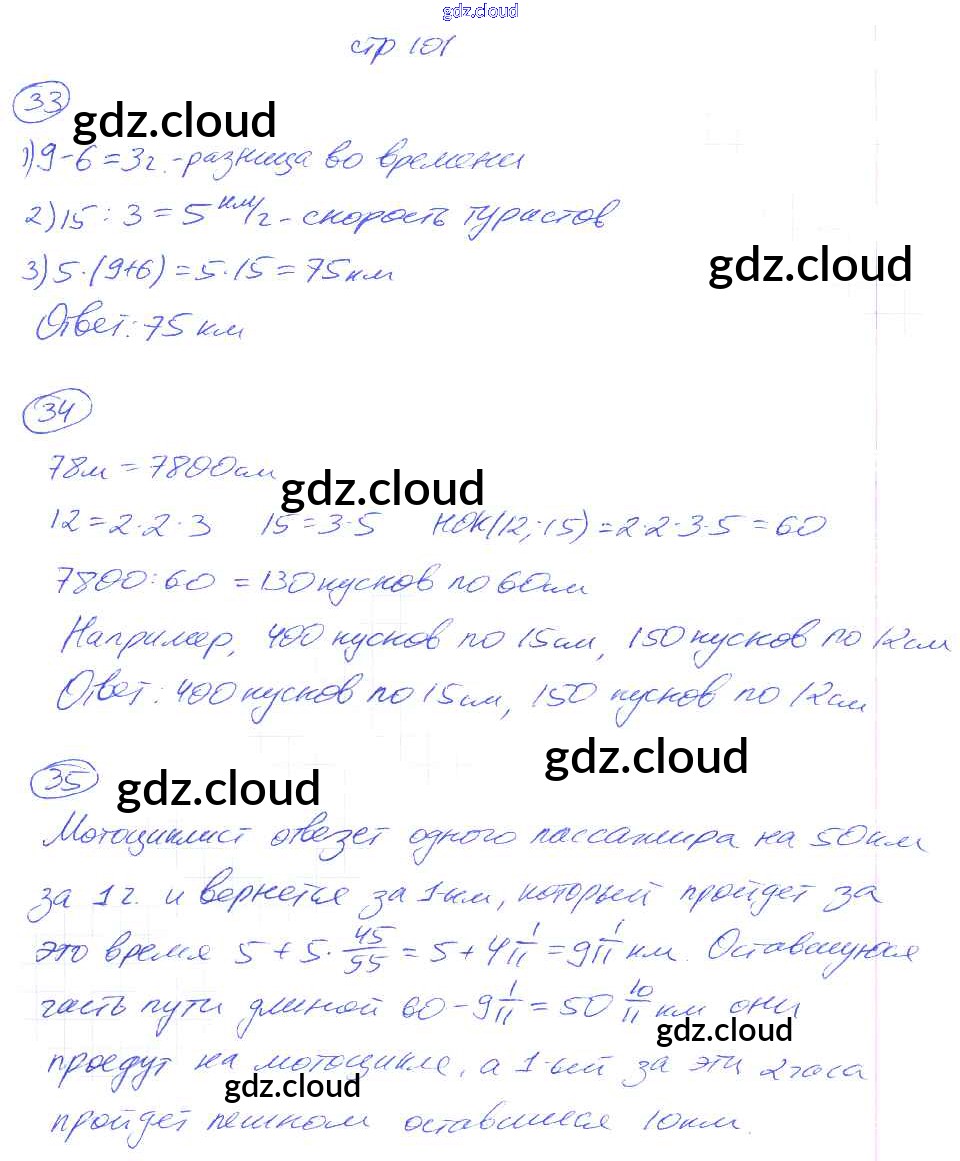 gdz.cloud
стр 101
33
gdz.cloud
1) 9-6=3ч.-разница во времени
2) 15:3=5 км/ч-скорость туристов
3) 5·(9+6)=5·15=75км
gdz.cloud
Ответ: 75 км
34
78м=7800см
gdz.cloud
12=2·2·3 15=3·5 НОК(12;15)=2·2·3·5=60
7800:60=130 кусков по 60см
Например, 400 кусков по 15см, 150 кусков по 12см
Ответ: 400 кусков по 15см, 150 кусков по 12см
gdz.cloud
35
gdz.cloud
Мотоциклист отвезет одного пассажира на 50км
за 1ч. и вернется за 1-ым, который пройдет за
это время 5+5·45/55=5+4 1/11=9 1/11 км. Оставшуюся
часть пути длиной 60-9 1/11=50 10/11 км они
gdz.cloud
проедут на мотоцикле, а 1-ый за эти 2 часа
gdz.cloud
пройдет пешком оставшиеся 10км.